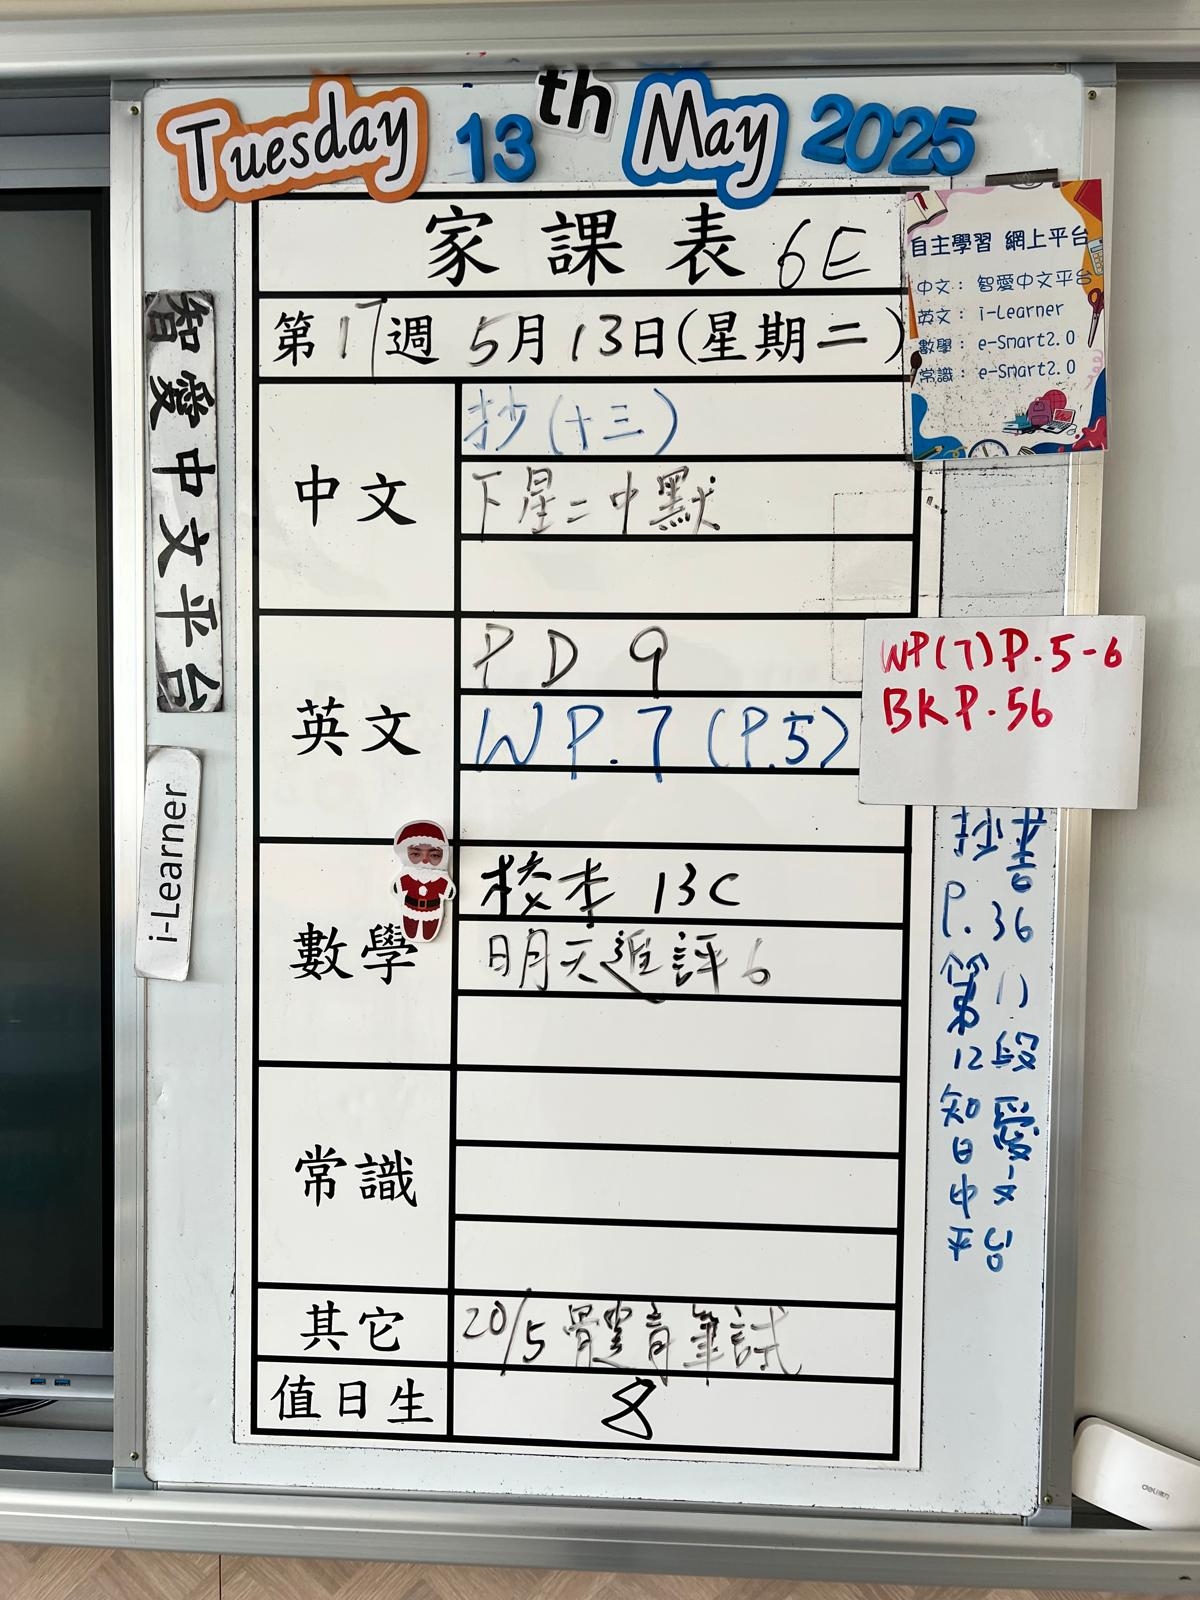 Tuesday 13th May 2025
家課表 6E
第17週 5月13日(星期二)
中文
抄(十三)
下星二中默
英文
PD 9
WP.7 (P.5)
數學
校本 13C
明天進評6
常識
其它
20/5 體育筆試
值日生
8
自主學習 網上平台
中文：智愛中文平台
英文：i-Learner
數學：e-Smart2.0
常識：e-Smart2.0
WP(7)P.5-6
BKP.56
P.36
第11
12段
知愛
日文
中台
平
智愛中文平台
i-Learner
deli得力